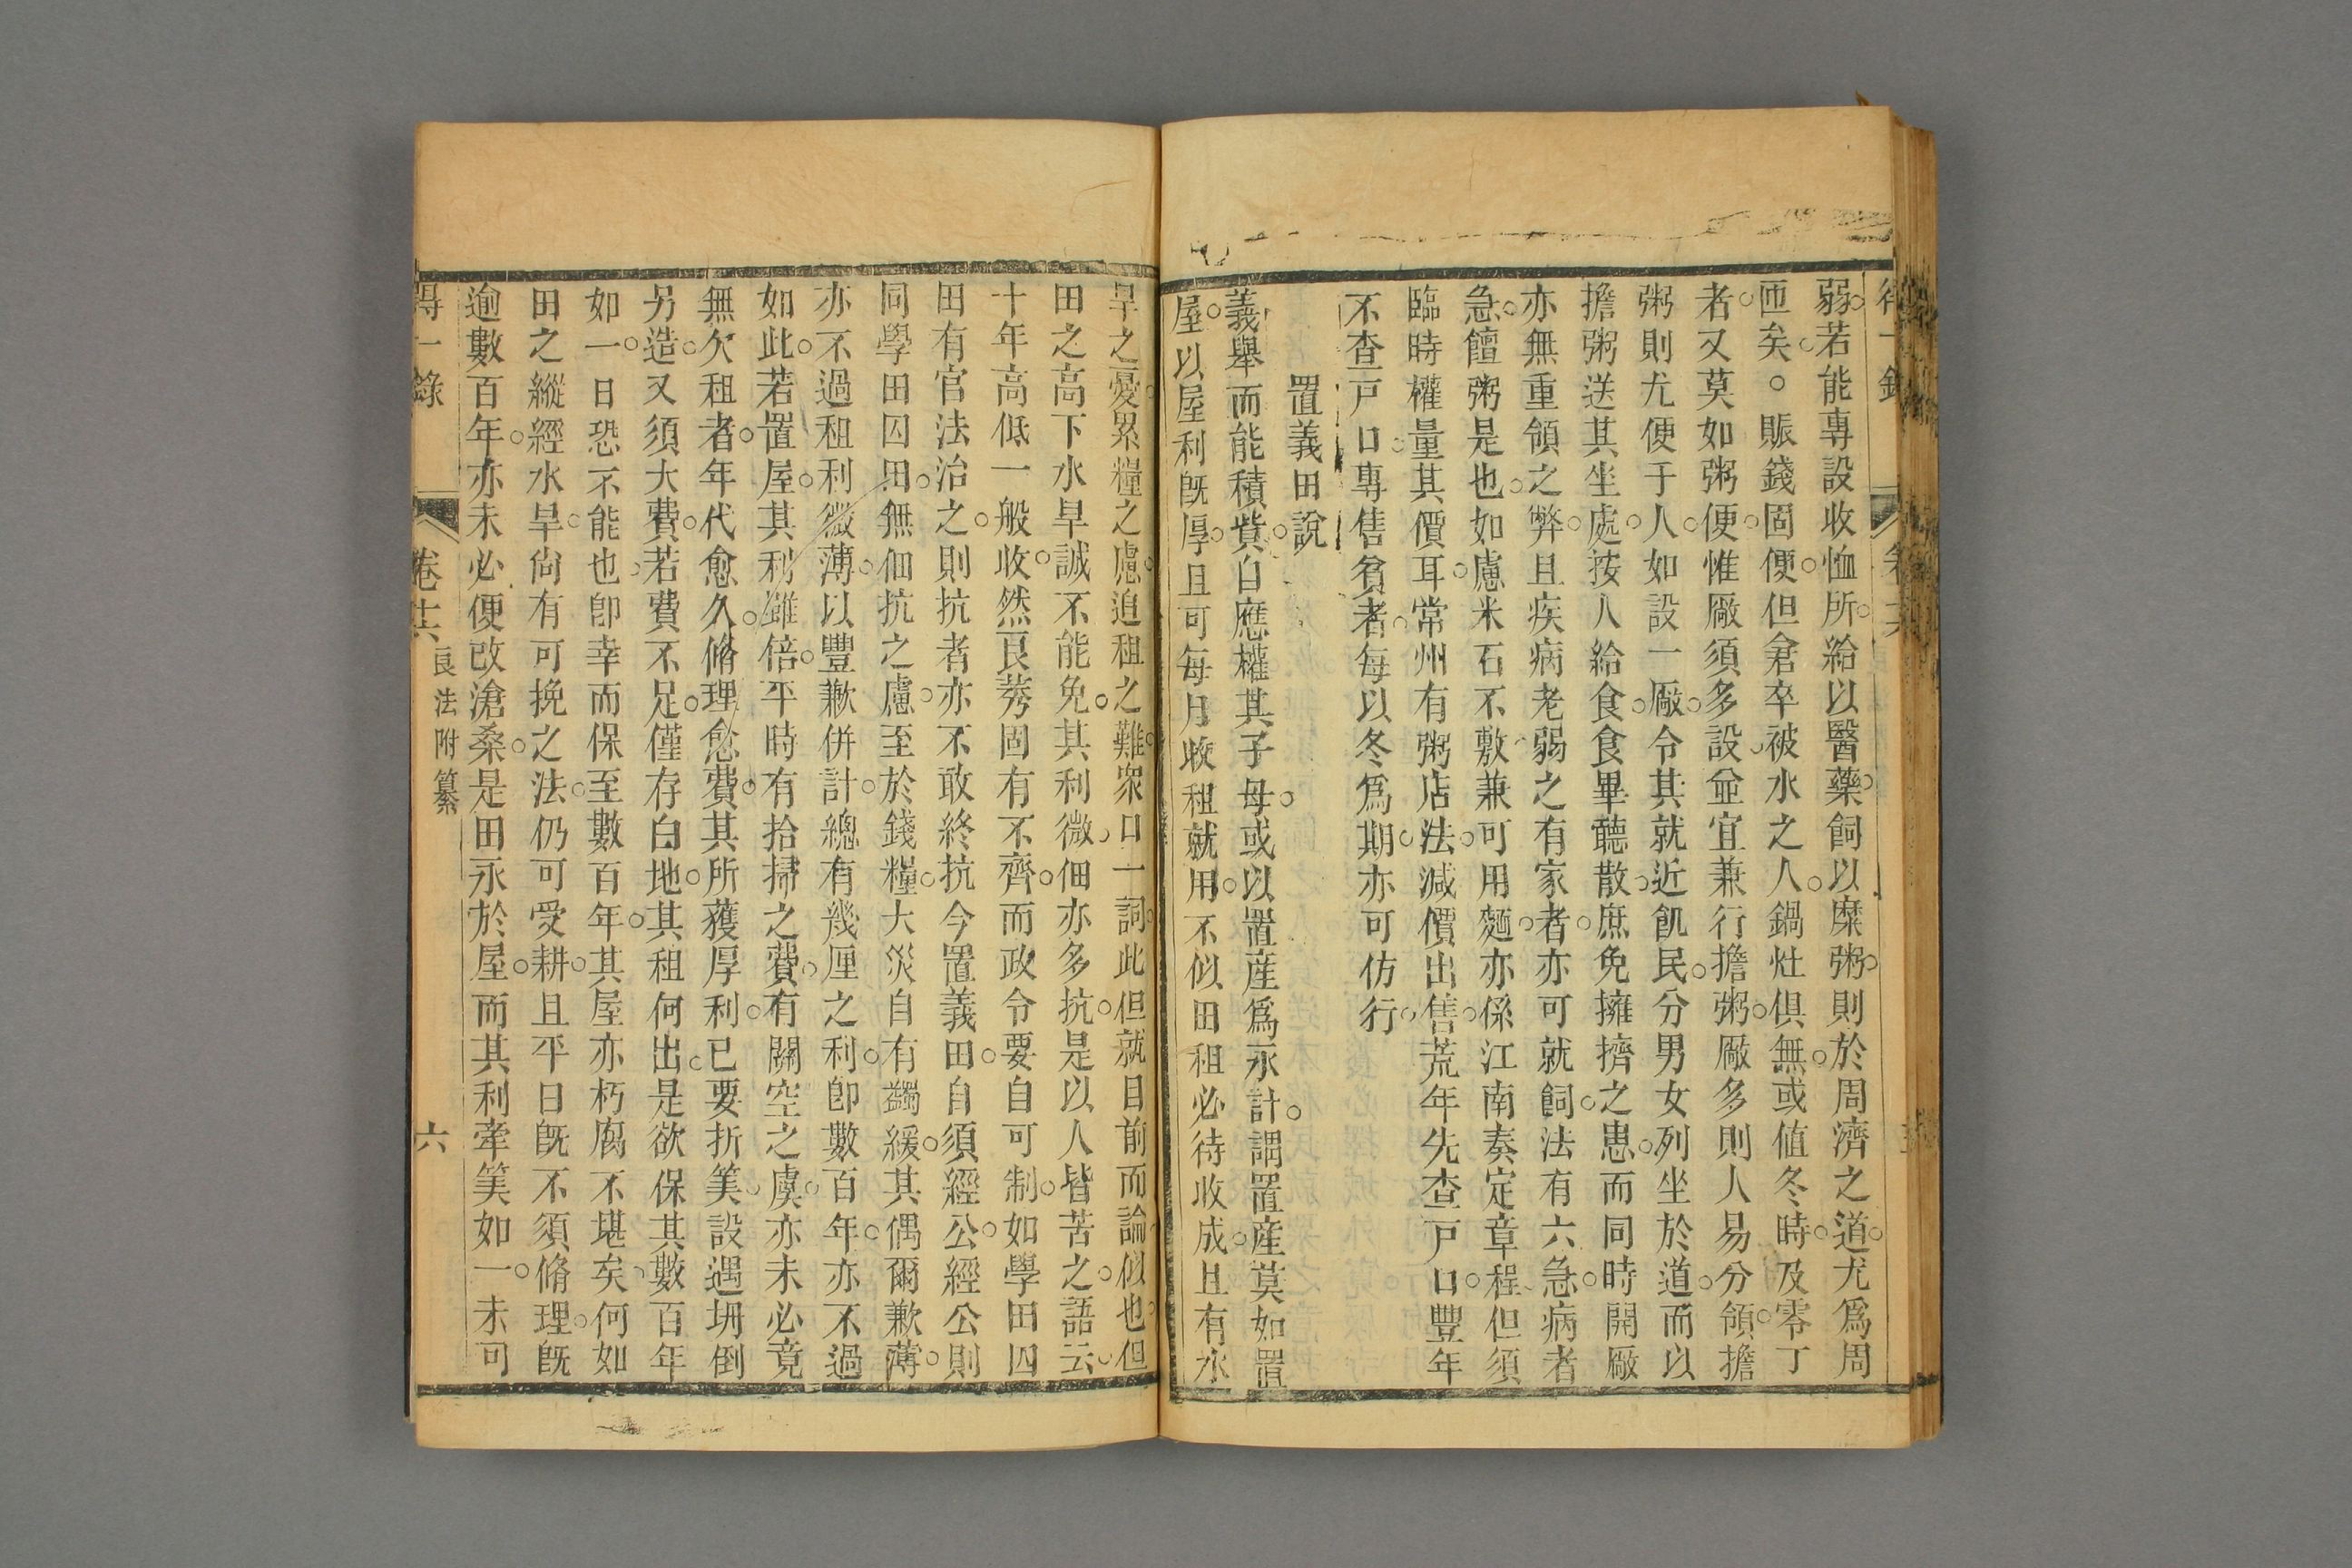 得一錄
弱若能專設收恤所給以醫藥飼以糜粥則於周濟之道尤爲周
匝矣。賑錢固便但倉卒被水之人鍋灶俱無或值冬時及零丁
者又莫如粥便惟厰須多設並宜兼行擔粥厰多則人易分領擔
粥則尤便于人如設一厰令其就近飢民分男女列坐於道而以
擔粥送其坐處按人給食食畢聽散庶免擁擠之患而同時開厰
亦無重領之弊且疾病老弱之有家者亦可就飼法有六急病者
急饘粥是也如慮米石不敷兼可用麵亦係江南奏定章程但須
臨時權量其價耳常州有粥店法減價出售荒年先查戸口豐年
不查戸口專售貧者每以冬爲期亦可仿行
置義田說
義舉而能積貲自應權其子母或以置産爲永計謂置産莫如置
屋以屋利既厚且可每月收租就用不似田租必待收成且有水
旱之憂累糧之慮迫租之難衆口一詞此但就目前而論似也但
田之高下水旱誠不能免其利微佃亦多抗是以人皆苦之語云
十年高低一般收然艮莠固有不齊而政令要自可制如學田囚
田有官法治之則抗者亦不敢終抗今置義田自須經公經公則
同學田囚田無佃抗之慮至於錢糧大災自有蠲緩其偶爾歉薄
亦不過租利微薄以豐歉併計總有幾厘之利卽數百年亦不過
如此若置屋其利雖倍平時有拾掃之費有關空之虞亦未必竟
無欠租者年代愈久脩理愈費其所獲厚利已要折筭設遇坍倒
另造又須大費若費不足僅存白地其租何出是欲保其數百年
如一日恐不能也卽幸而保至數百年其屋亦朽腐不堪矣何如
田之縱經水旱尙有可挽之法仍可受耕且平日既不須脩理既
逾數百年亦未必便改滄桑是田永於屋而其利牽筭如一未可
得一錄
卷十六
良法附纂
六